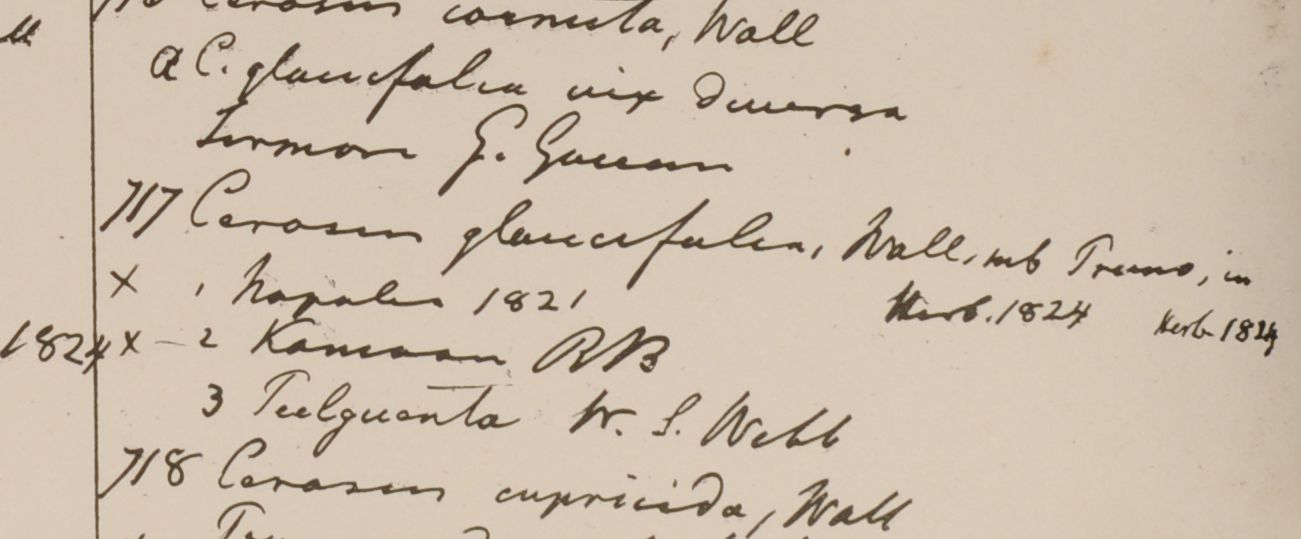 716 Cerasus cornuta, Wall
a C. glaucifolia vix diversa
Sirmore G. Govan
717 Cerasus glaucifolia, Wall, sub Pruno, in
Herb. 1824 Herb 1824
x 1 Napalia 1821
1824 x - 2 Kamaon RB
3 Tulguanta W. S. Webb
718 Cerasus capricida, Wall